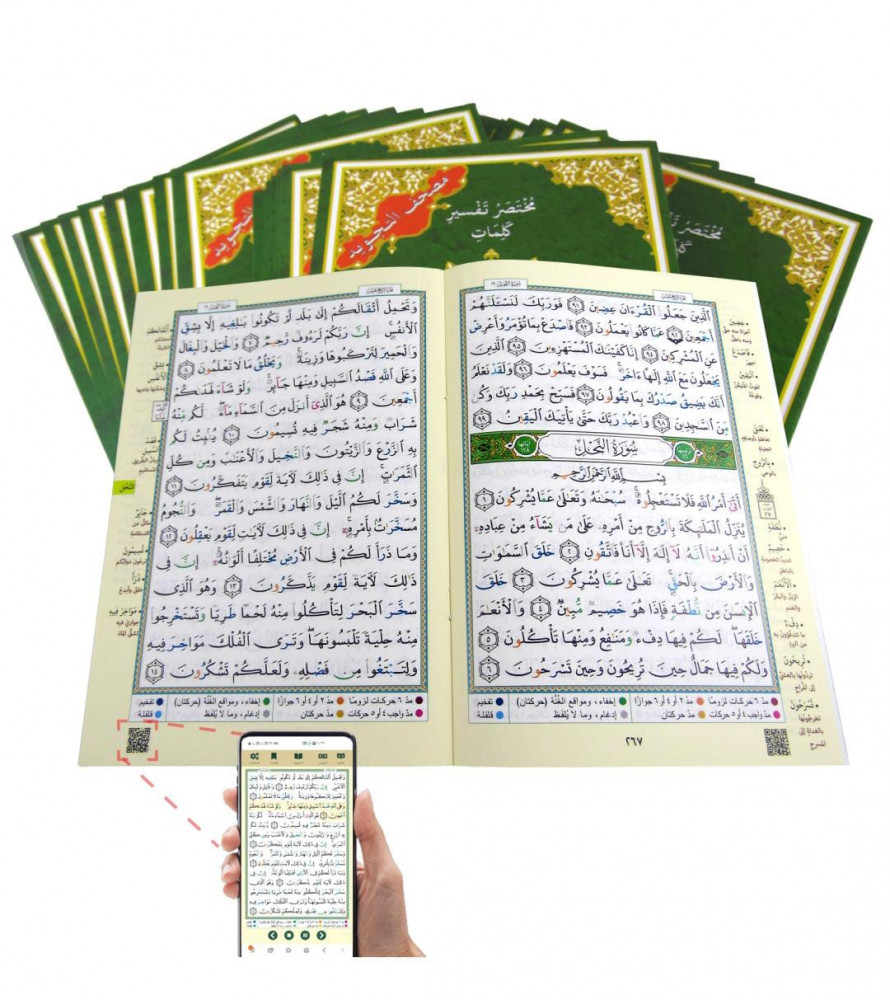 مصحف التجويد
مُخْتَصَرُ تَفْسِيرِ
كَلِمَاتِ
مصحف التجويد
الَّذِينَ جَعَلُوا الْقُرْءَانَ عِضِينَ ٩١ فَوَرَبِّكَ لَنَسْـَٔلَنَّهُمْ
أَجْمَعِينَ ٩٢ عَمَّا كَانُوا يَعْمَلُونَ ٩٣ فَاصْدَعْ بِمَا تُؤْمَرُ وَأَعْرِضْ
عَنِ الْمُشْرِكِينَ ٩٤ إِنَّا كَفَيْنَٰكَ الْمُسْتَهْزِءِينَ ٩٥ الَّذِينَ
يَجْعَلُونَ مَعَ اللَّهِ إِلَٰهًا ءَاخَرَ فَسَوْفَ يَعْلَمُونَ ٩٦ وَلَقَدْ نَعْلَمُ
أَنَّكَ يَضِيقُ صَدْرُكَ بِمَا يَقُولُونَ ٩٧ فَسَبِّحْ بِحَمْدِ رَبِّكَ وَكُن
مِّنَ السَّٰجِدِينَ ٩٨ وَاعْبُدْ رَبَّكَ حَتَّىٰ يَأْتِيَكَ الْيَقِينُ ٩٩
سُورَةُ النَّحْلِ
بِسْمِ اللَّهِ الرَّحْمَٰنِ الرَّحِيمِ
أَتَىٰ أَمْرُ اللَّهِ فَلَا تَسْتَعْجِلُوهُ سُبْحَٰنَهُ وَتَعَٰلَىٰ عَمَّا يُشْرِكُونَ ١
يُنَزِّلُ الْمَلَٰئِكَةَ بِالرُّوحِ مِنْ أَمْرِهِ عَلَىٰ مَن يَشَاءُ مِنْ عِبَادِهِ
أَنْ أَنذِرُوا أَنَّهُ لَا إِلَٰهَ إِلَّا أَنَا فَاتَّقُونِ ٢ خَلَقَ السَّمَٰوَٰتِ
وَالْأَرْضَ بِالْحَقِّ تَعَٰلَىٰ عَمَّا يُشْرِكُونَ ٣ خَلَقَ
الْإِنسَٰنَ مِن نُّطْفَةٍ فَإِذَا هُوَ خَصِيمٌ مُّبِينٌ ٤ وَالْأَنْعَٰمَ
خَلَقَهَا لَكُمْ فِيهَا دِفْءٌ وَمَنَٰفِعُ وَمِنْهَا تَأْكُلُونَ ٥
وَلَكُمْ فِيهَا جَمَالٌ حِينَ تُرِيحُونَ وَحِينَ تَسْرَحُونَ ٦
مدّ ٦ حركات لزوماً مدّ ٢ أو ٤ أو ٦ جوازاً إخفاء، ومواقع الغُنَّة (حركتان) تفخيم
مدّ واجب ٤ أو ٥ حركات مدّ حركتان إدغام، وما لا يُلفظ قلقلة
٢٦٧
وَتَحْمِلُ أَثْقَالَكُمْ إِلَىٰ بَلَدٍ لَّمْ تَكُونُوا بَٰلِغِيهِ إِلَّا بِشِقِّ
الْأَنفُسِ إِنَّ رَبَّكُمْ لَرَءُوفٌ رَّحِيمٌ ٧ وَالْخَيْلَ وَالْبِغَالَ
وَالْحَمِيرَ لِتَرْكَبُوهَا وَزِينَةً وَيَخْلُقُ مَا لَا تَعْلَمُونَ ٨
وَعَلَى اللَّهِ قَصْدُ السَّبِيلِ وَمِنْهَا جَائِرٌ وَلَوْ شَاءَ لَهَدَىٰكُمْ
أَجْمَعِينَ ٩ هُوَ الَّذِي أَنزَلَ مِنَ السَّمَاءِ مَاءً لَّكُم مِّنْهُ
شَرَابٌ وَمِنْهُ شَجَرٌ فِيهِ تُسِيمُونَ ١٠ يُنبِتُ لَكُم
بِهِ الزَّرْعَ وَالزَّيْتُونَ وَالنَّخِيلَ وَالْأَعْنَٰبَ وَمِن كُلِّ
الثَّمَرَٰتِ إِنَّ فِي ذَٰلِكَ لَءَايَةً لِّقَوْمٍ يَتَفَكَّرُونَ ١١
وَسَخَّرَ لَكُمُ الَّيْلَ وَالنَّهَارَ وَالشَّمْسَ وَالْقَمَرَ وَالنُّجُومُ
مُسَخَّرَٰتٌ بِأَمْرِهِ إِنَّ فِي ذَٰلِكَ لَءَايَٰتٍ لِّقَوْمٍ يَعْقِلُونَ ١٢
وَمَا ذَرَأَ لَكُمْ فِي الْأَرْضِ مُخْتَلِفًا أَلْوَٰنُهُ إِنَّ فِي
ذَٰلِكَ لَءَايَةً لِّقَوْمٍ يَذَّكَّرُونَ ١٣ وَهُوَ الَّذِي
سَخَّرَ الْبَحْرَ لِتَأْكُلُوا مِنْهُ لَحْمًا طَرِيًّا وَتَسْتَخْرِجُوا
مِنْهُ حِلْيَةً تَلْبَسُونَهَا وَتَرَى الْفُلْكَ مَوَاخِرَ فِيهِ
وَلِتَبْتَغُوا مِن فَضْلِهِ وَلَعَلَّكُمْ تَشْكُرُونَ ١٤
مدّ ٦ حركات لزوماً مدّ ٢ أو ٤ أو ٦ جوازاً إخفاء، ومواقع الغُنَّة (حركتان) تفخيم
مدّ واجب ٤ أو ٥ حركات مدّ حركتان إدغام، وما لا يُلفظ قلقلة